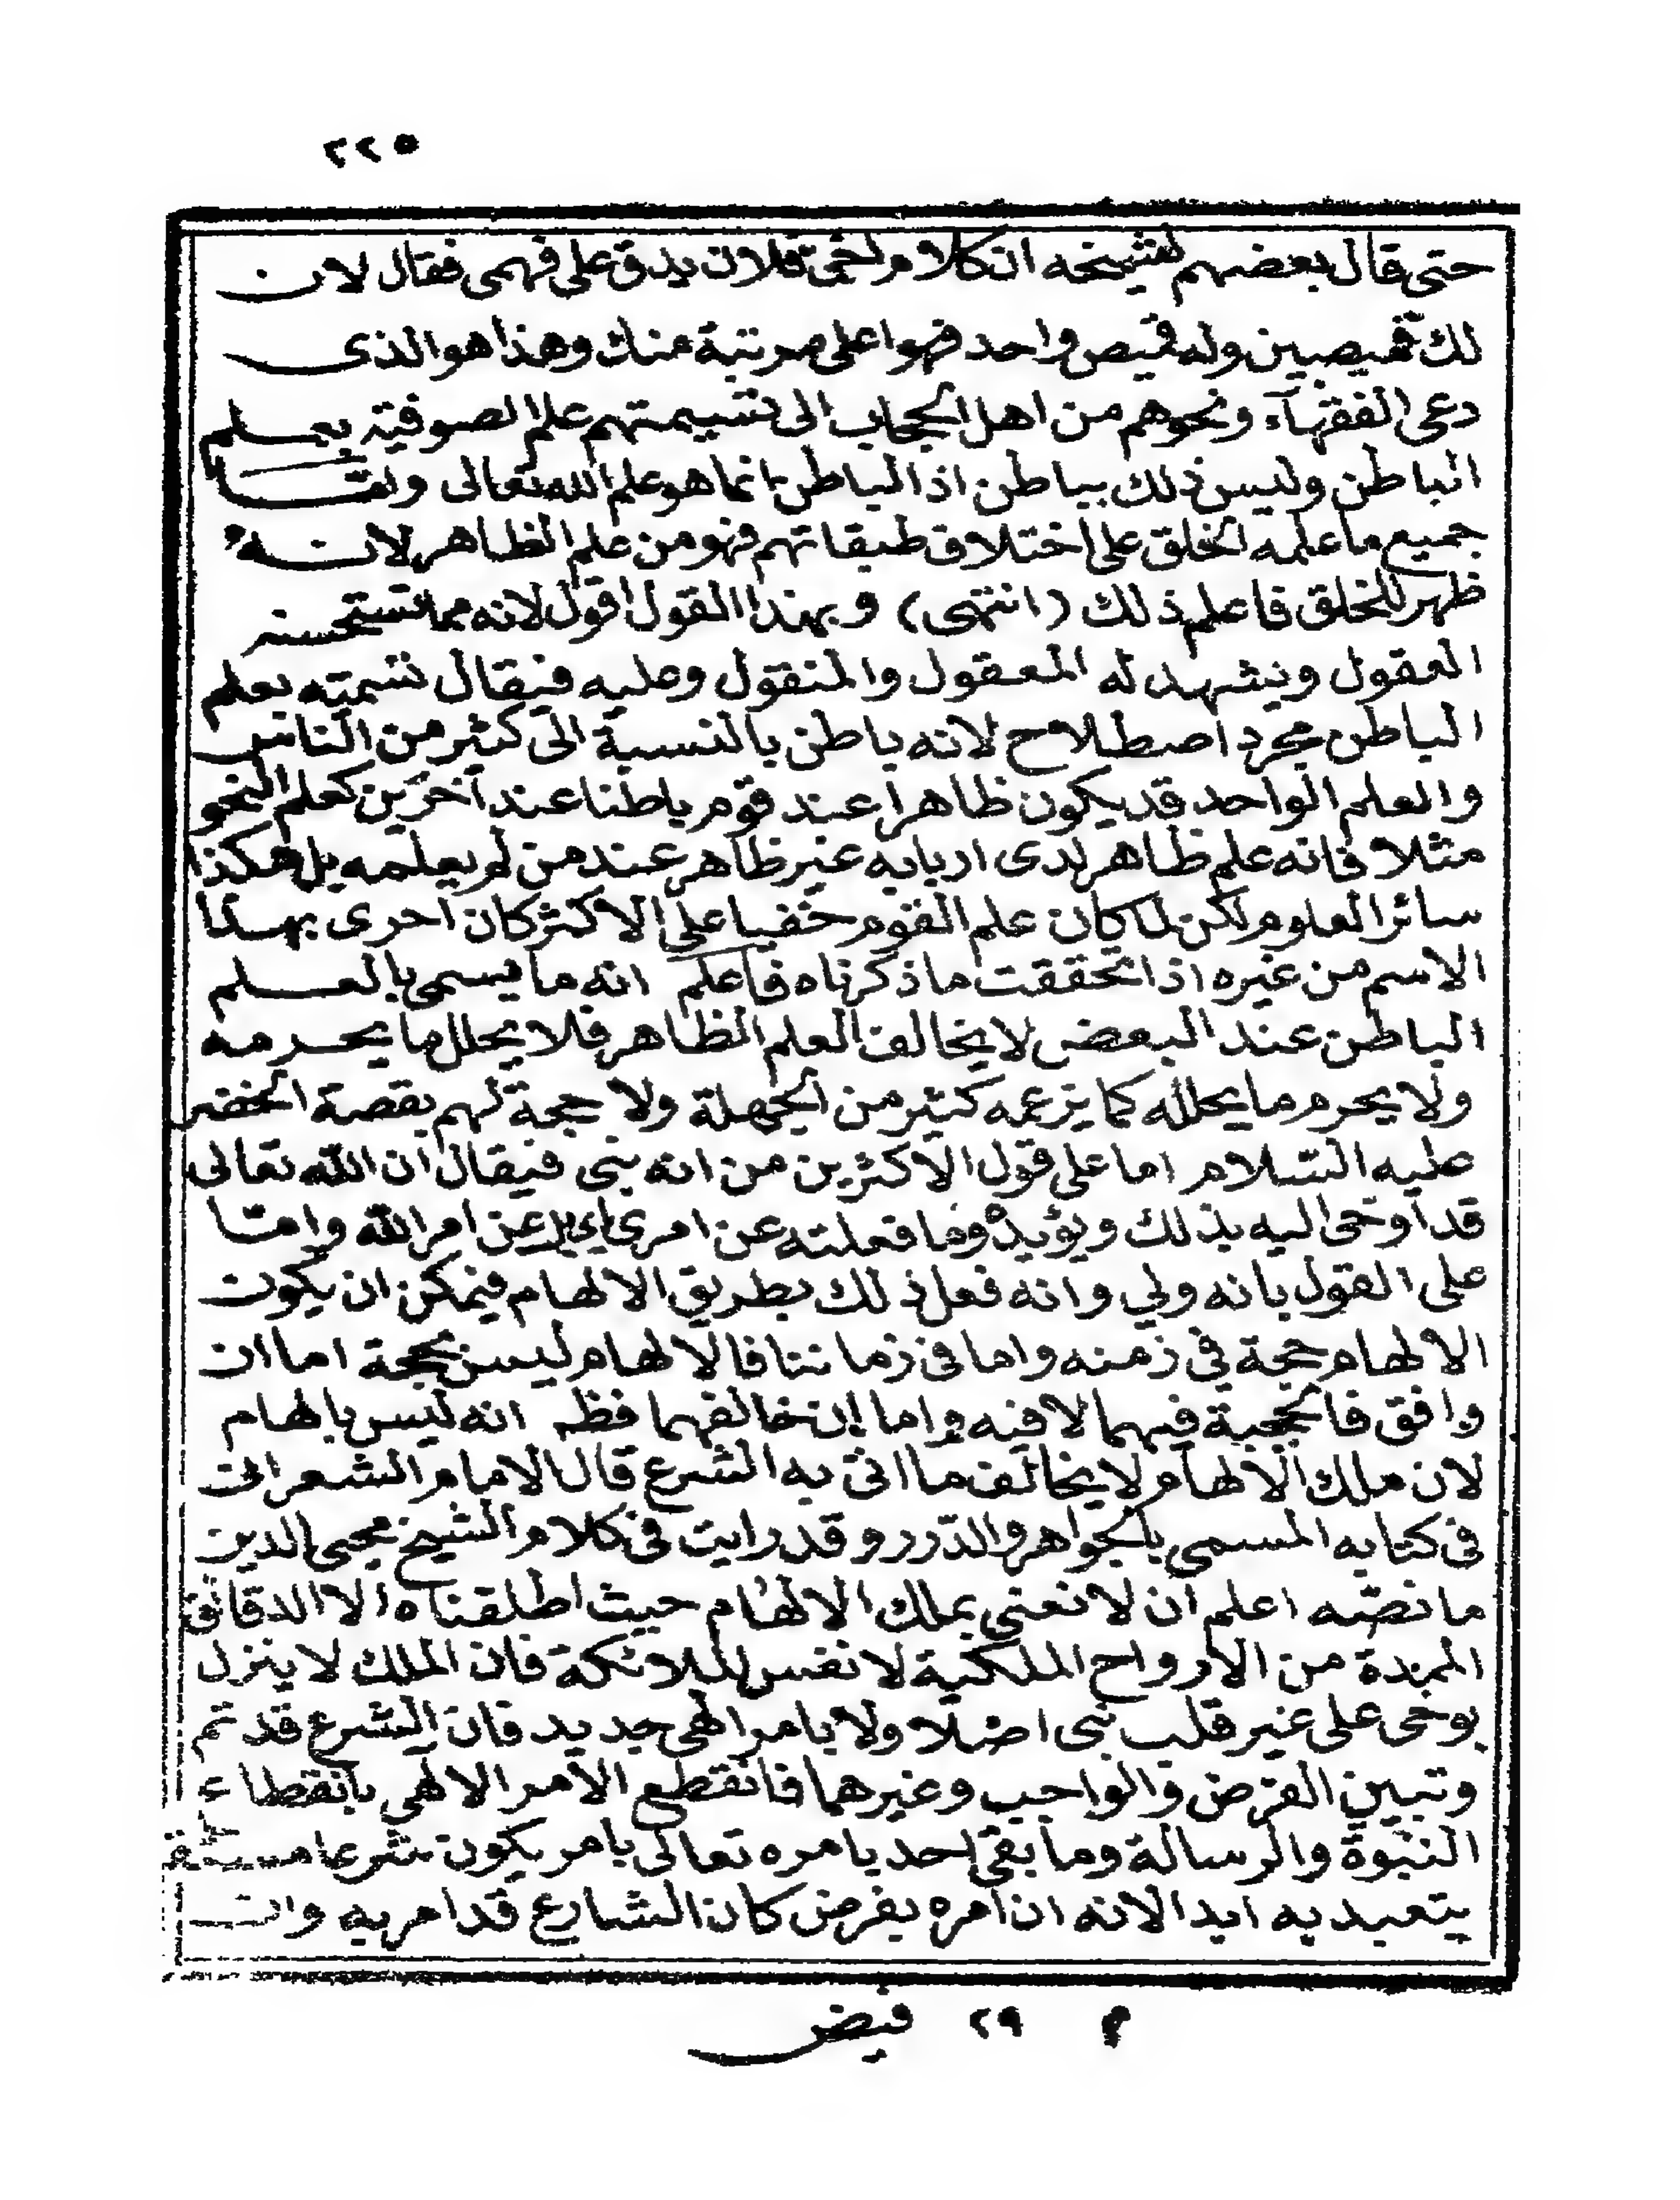 ٢٢٥
حتى قال بعضهم لشيخه ان كلام اخى فلان يدق على فهمى فقال لان
لك قميصين وله قميص واحد فهو اعلى مرتبة منك وهذا هو الذى
دعى الفقهآء ونحوهم من اهل الحجاب الى تسيمتهم علم الصوفية بعلم
الباطن وليس ذلك بباطن اذ الباطن انما هو علم الله تعالى واما
جميع ما علمه الخلق على اختلاف طبقاتهم فهو من علم الظاهر لانه
ظهر للخلق فاعلم ذلك (انتهى) وبهذا القول اقول لانه مما تستحسنه
العقول ويشهد له المعقول والمنقول وعليه فيقال تسميته بعلم
الباطن مجرد اصطلاح لانه باطن بالنسبة الى كثير من الناس
والعلم الواحد قد يكون ظاهرا عند قوم باطنا عند آخرين كعلم النحو
مثلا فانه علم ظاهر لدى اربابه غير ظاهر عند من لم يعلمه بل هكذا
سائر العلوم لكن لما كان علم القوم خفيا على الاكثر كان احرى بهذا
الاسم من غيره اذا تحققت ما ذكرناه فاعلم انه ما يسمى بالعلم
الباطن عند البعض لا يخالف العلم الظاهر فلا يحلل ما يحرمه
ولا يحرم ما يحلله كما يزعمه كثير من الجهلة ولا حجة لهم بقصة الخضر
عليه السلام اما على قول الاكثرين من انه نبى فيقال ان الله تعالى
قد اوحى اليه بذلك ويؤيده وما فعلته عن امرى اى بل عن امر الله واما
على القول بانه ولي وانه فعل ذلك بطريق الالهام فيمكن ان يكون
الالهام حجة في زمنه واما فى زماننا فالالهام ليس بحجة اما ان
وافق فالحجية فيهما لا فيه واما إن خالفهما فظهر انه ليس بالهام
لان ملك الالهام لا يخالف ما اتى به الشرع قال الامام الشعرانى
فى كتابه المسمى بالجواهر والدرر وقد رايت فى كلام الشيخ محيى الدين
ما نصه اعلم ان لا نعنى بملك الالهام حيث اطلقناه الا الدقائق
الممتدة من الارواح الملكية لا نفس الملائكة فان الملك لا ينزل
بوحى على غير قلب نبى اصلا ولا يامر الهى جديد فان الشرع قد تم
وتبين الفرض والواجب وغيرهما فانقطع الامر الالهى بانقطاع
النبوة والرسالة وما بقى احد يامره تعالى بامر يكون شرعا مستقلا
يتعبد به ابدا لانه ان امره بفرض كان الشارع قد امر به وان
م ٢٩ فيض